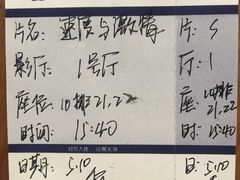 片名: 速度与激情 片: S
影厅: 1号厅 厅: 1
座位: 10排21,22 座: 10排21,22
时间: 15:40 时: 15:40
对号入座 过期无效
日期: 5.10 日: 5.10